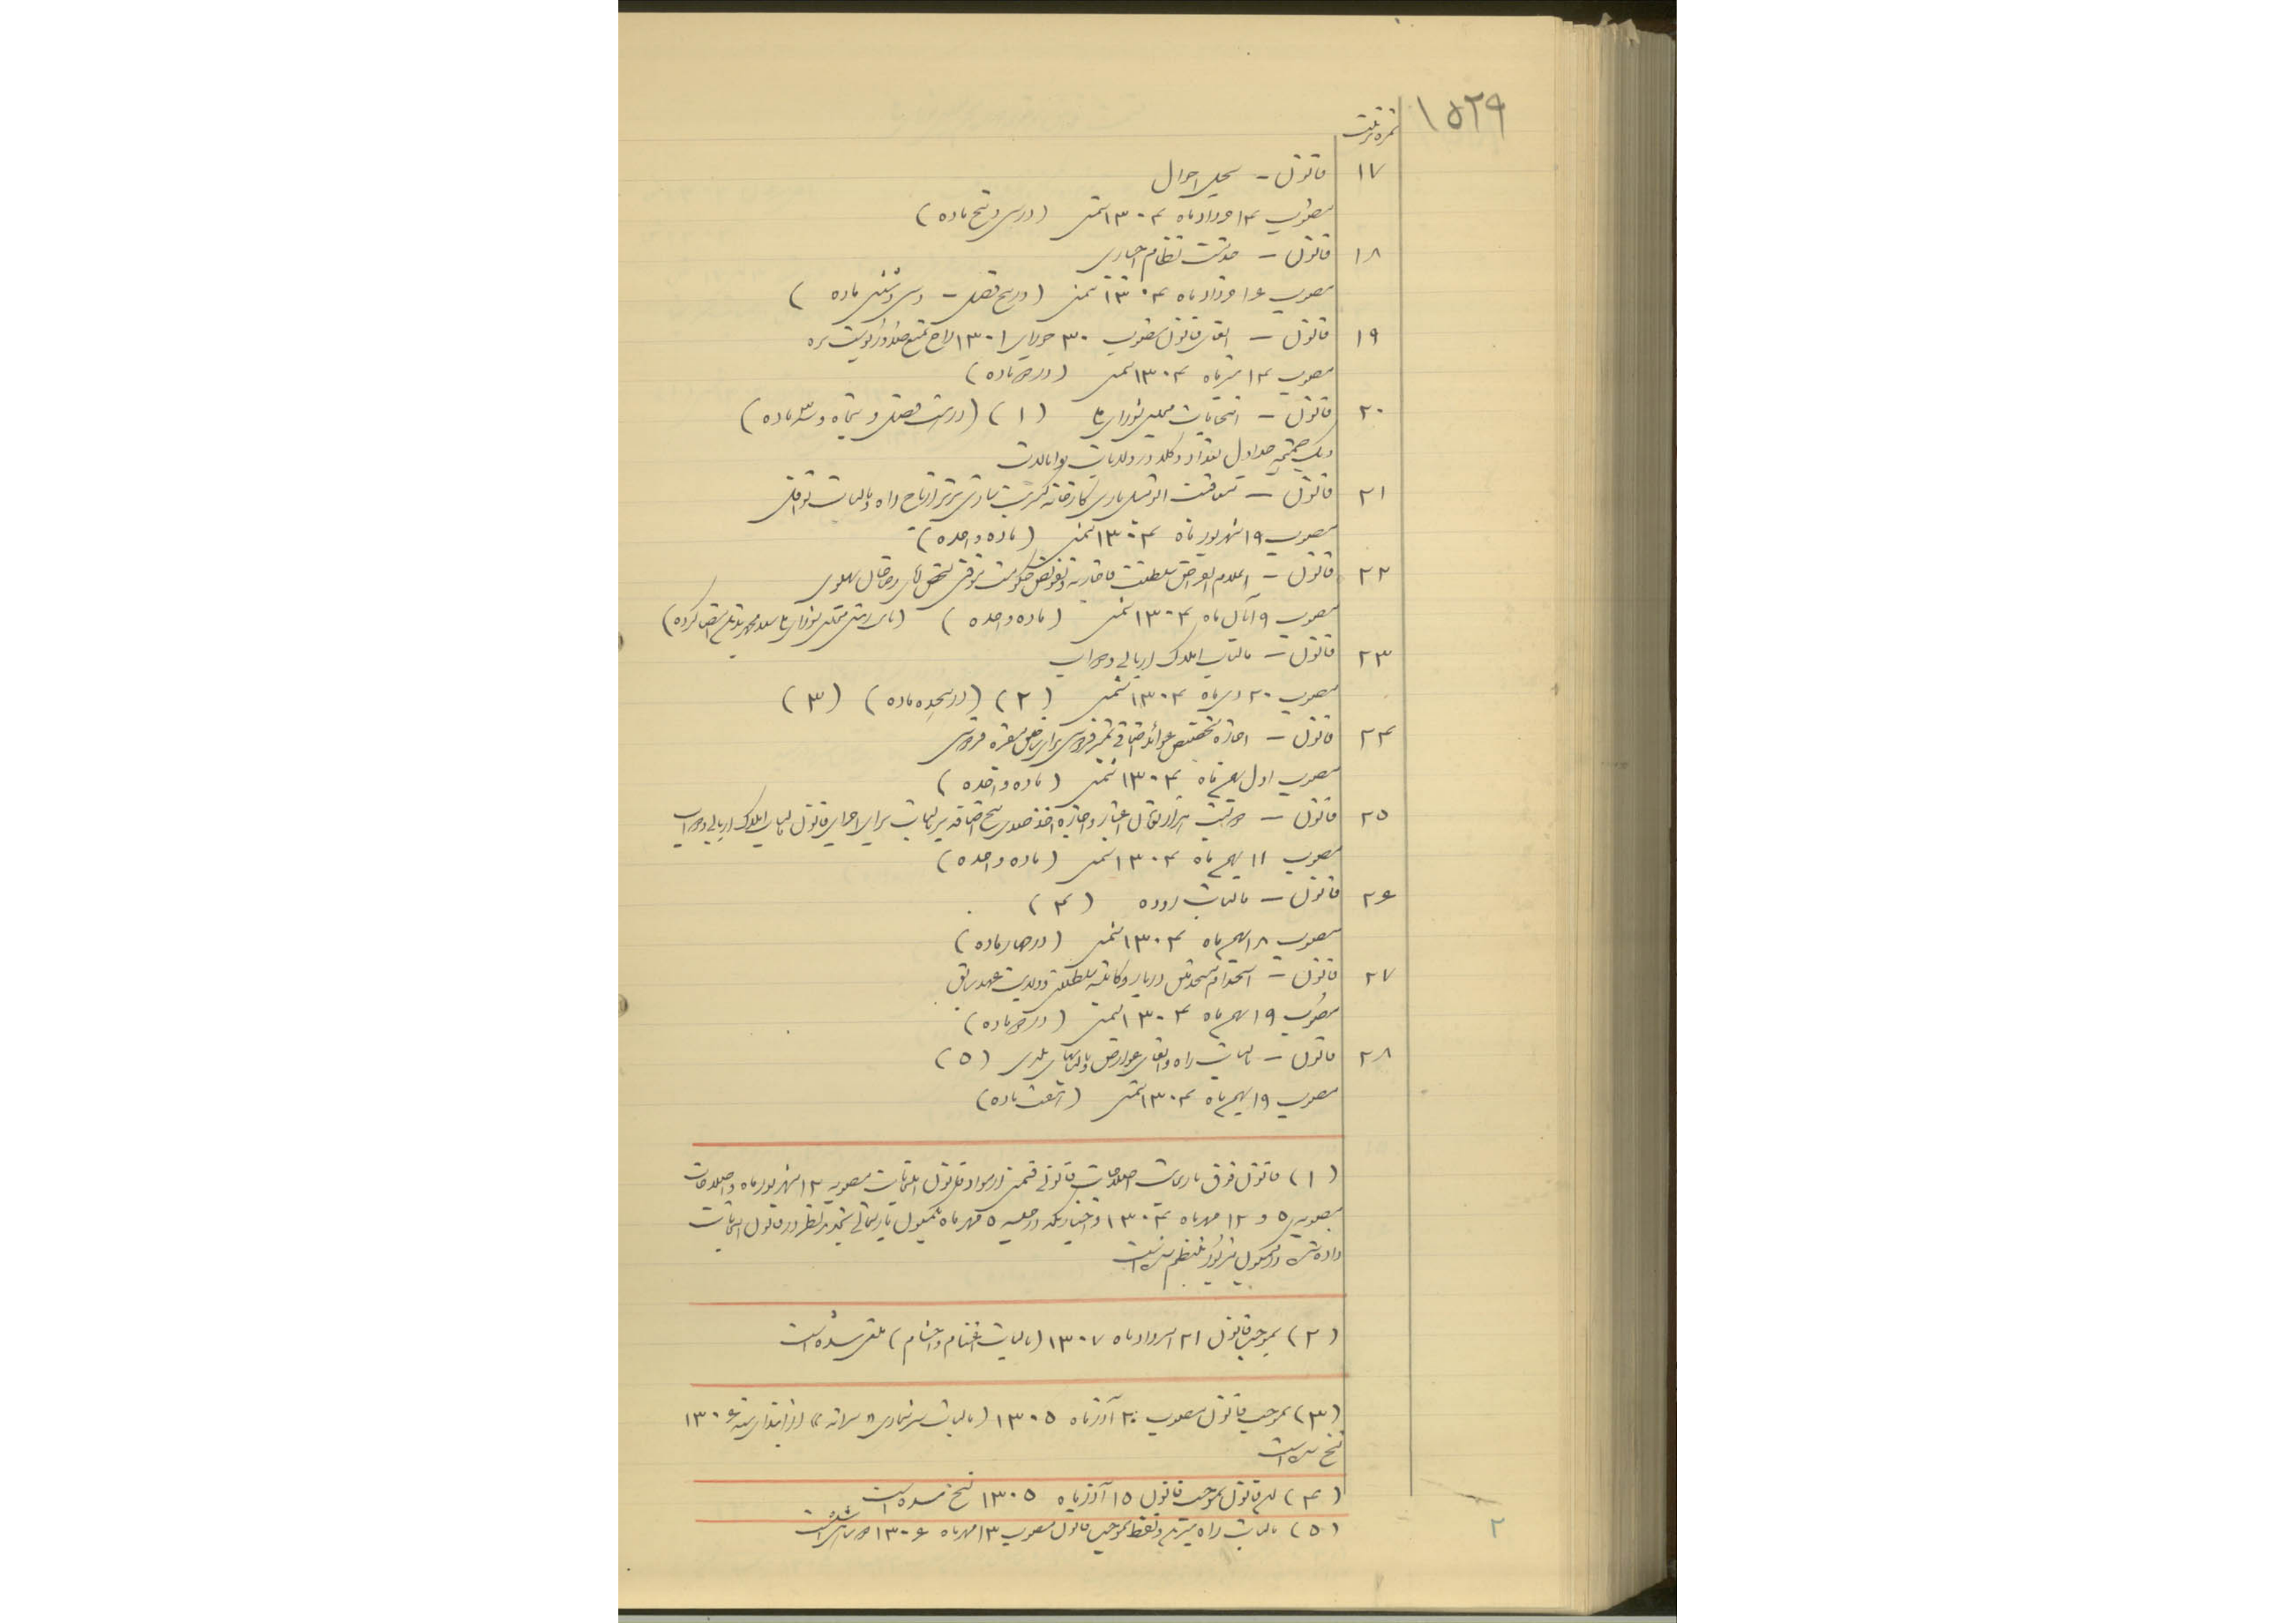 ۱۵۲۹
نمره ترتیب
۱۷ قانون – سجل احوال
مصوب ۱۴ خرداد ماه ۱۳۰۴ شمسی (در سی و پنج ماده)
۱۸ قانون – خدمت نظام اجباری
مصوب ۱۶ خرداد ماه ۱۳۰۴ شمسی (در پنج فصل – و سی و شش ماده)
۱۹ قانون – الغای قانون مصوب ۳۰ جوزای ۱۳۰۱ راجع بمنع صدور
مصوب ۱۴ تیر ماه ۱۳۰۴ شمسی (در دو ماده)
۲۰ قانون – انتخابات مجلس شورای ملی (۱) (در هشت فصل و پنجاه و سه ماده)
و یک ضمیمه جداول تعداد وکلا در ولایات و ایالات
۲۱ قانون – معافیت کارخانه کبریت سازی تبریز از باج راه و مالیات نواقل
مصوب ۱۹ شهریور ماه ۱۳۰۴ شمسی (ماده واحده)
۲۲ قانون – اعلام انقراض سلطنت قاجاریه و تفویض حکومت موقتی بشخص آقای رضا خان پهلوی
مصوب ۹ آبان ماه ۱۳۰۴ شمسی (ماده واحده)
۲۳ قانون – مالیات املاک اربابی و دواب
مصوب ۲۰ دی ماه ۱۳۰۴ شمسی (۲) (در هیجده ماده) (۳)
۲۴ قانون – اجازه تخصیص عوائد اضافی تمبر فردوسی برای ساختن مقبره فردوسی
مصوب اول بهمن ماه ۱۳۰۴ شمسی (ماده واحده)
۲۵ قانون – دویست هزار تومان اعتبار و اجازه اخذ صدی پنج اضافه بر مالیات برای اجرای قانون مالیات املاک اربابی و دواب
مصوب ۱۱ بهمن ماه ۱۳۰۴ شمسی (ماده واحده)
۲۶ قانون – مالیات روده (۴)
مصوب ۱۸ بهمن ماه ۱۳۰۴ شمسی (در چهار ماده)
۲۷ قانون – استخدام مستخدمین دربار و کابینه سلطنتی و ولایت عهد سابق
مصوب ۱۹ بهمن ماه ۱۳۰۴ شمسی (در دو ماده)
۲۸ قانون – مالیات راه و الغای عوارض و مالیاتهای بلدی (۵)
مصوب ۱۹ بهمن ماه ۱۳۰۴ شمسی (هفت ماده)
(۱) قانون فوق با رعایت اصلاحات قانونی قسمتی از مواد قانون انتخابات مصوبه ۱۲ شهریور ماه و اصلاحات
مصوبه ۵ و ۱۲ مهر ماه ۱۳۰۴ و اختیاریکه در جلسه ۵ مهر ماه بکمیسیون پارلمانی تجدید نظر در قانون انتخابات
داده شده در کمیسیون مزبور تنظیم شده است
(۲) بموجب قانون ۲۱ مرداد ماه ۱۳۰۷ (مالیات اغنام و احشام) ملغی شده است
(۳) بموجب قانون مصوب ۲۰ آذر ماه ۱۳۰۵ (مالیات سرشماری «سرانه») از ابتدای سنه ۱۳۰۶
نسخ شده است
(۴) این قانون بموجب قانون ۱۵ آذر ماه ۱۳۰۵ نسخ شده است
(۵) مالیات راه بموجب قانون مصوب ۱۳ مهر ماه ۱۳۰۶
۲